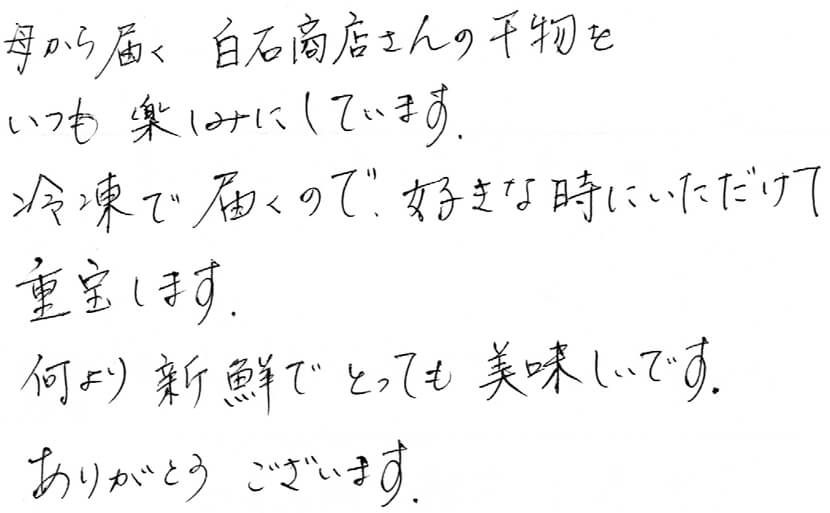 母から届く 白石商店さんの干物を
いつも 楽しみにしています.
冷凍で 届くので、好きな時にいただけて
重宝します.
何より 新鮮で とっても 美味しいです.
ありがとう ございます.